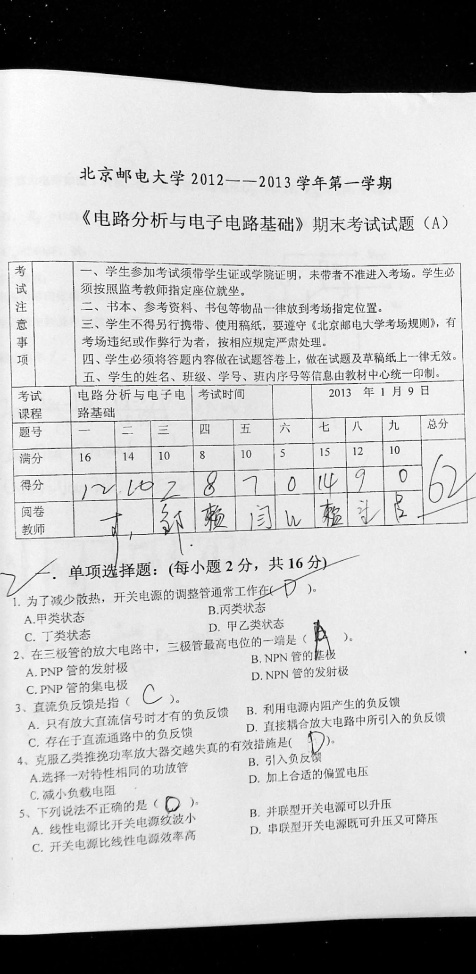 北京邮电大学2012——2013学年第一学期
《电路分析与电子电路基础》期末考试试题（A）
考试注意事项
一、学生参加考试须带学生证或学院证明，未带者不准进入考场。学生必
须按照监考教师指定座位就坐。
二、书本、参考资料、书包等物品一律放到考场指定位置。
三、学生不得另行携带、使用稿纸，要遵守《北京邮电大学考场规则》，有
考场违纪或作弊行为者，按相应规定严肃处理。
四、学生必须将答题内容做在试题答卷上，做在试题及草稿纸上一律无效。
五、学生的姓名、班级、学号、班内序号等信息由教材中心统一印制。
考试课程 电路分析与电子电路基础 考试时间 2013 年 1 月 9 日
题号 一 二 三 四 五 六 七 八 九 总分
满分 16 14 10 8 10 5 15 12 10
得分 12 10 2 8 7 0 14 9 0 62
阅卷教师
一. 单项选择题：(每小题 2 分，共 16 分)
1. 为了减少散热，开关电源的调整管通常工作在( D )。
A.甲类状态 B.丙类状态
C. 丁类状态 D. 甲乙类状态
2、在三极管的放大电路中，三极管最高电位的一端是（ A ）。
A.PNP 管的发射极 B.NPN 管的基极
C.PNP 管的集电极 D.NPN 管的发射极
3、直流负反馈是指（ C ）。
A. 只有放大直流信号时才有的负反馈 B. 利用电源内阻产生的负反馈
C. 存在于直流通路中的负反馈 D. 直接耦合放大电路中所引入的负反馈
4、克服乙类推挽功率放大器交越失真的有效措施是( D )。
A.选择一对特性相同的功放管 B. 引入负反馈
C. 减小负载电阻 D. 加上合适的偏置电压
5、下列说法不正确的是（ D ）。
A. 线性电源比开关电源纹波小 B. 并联型开关电源可以升压
C. 开关电源比线性电源效率高 D. 串联型开关电源既可升压又可降压